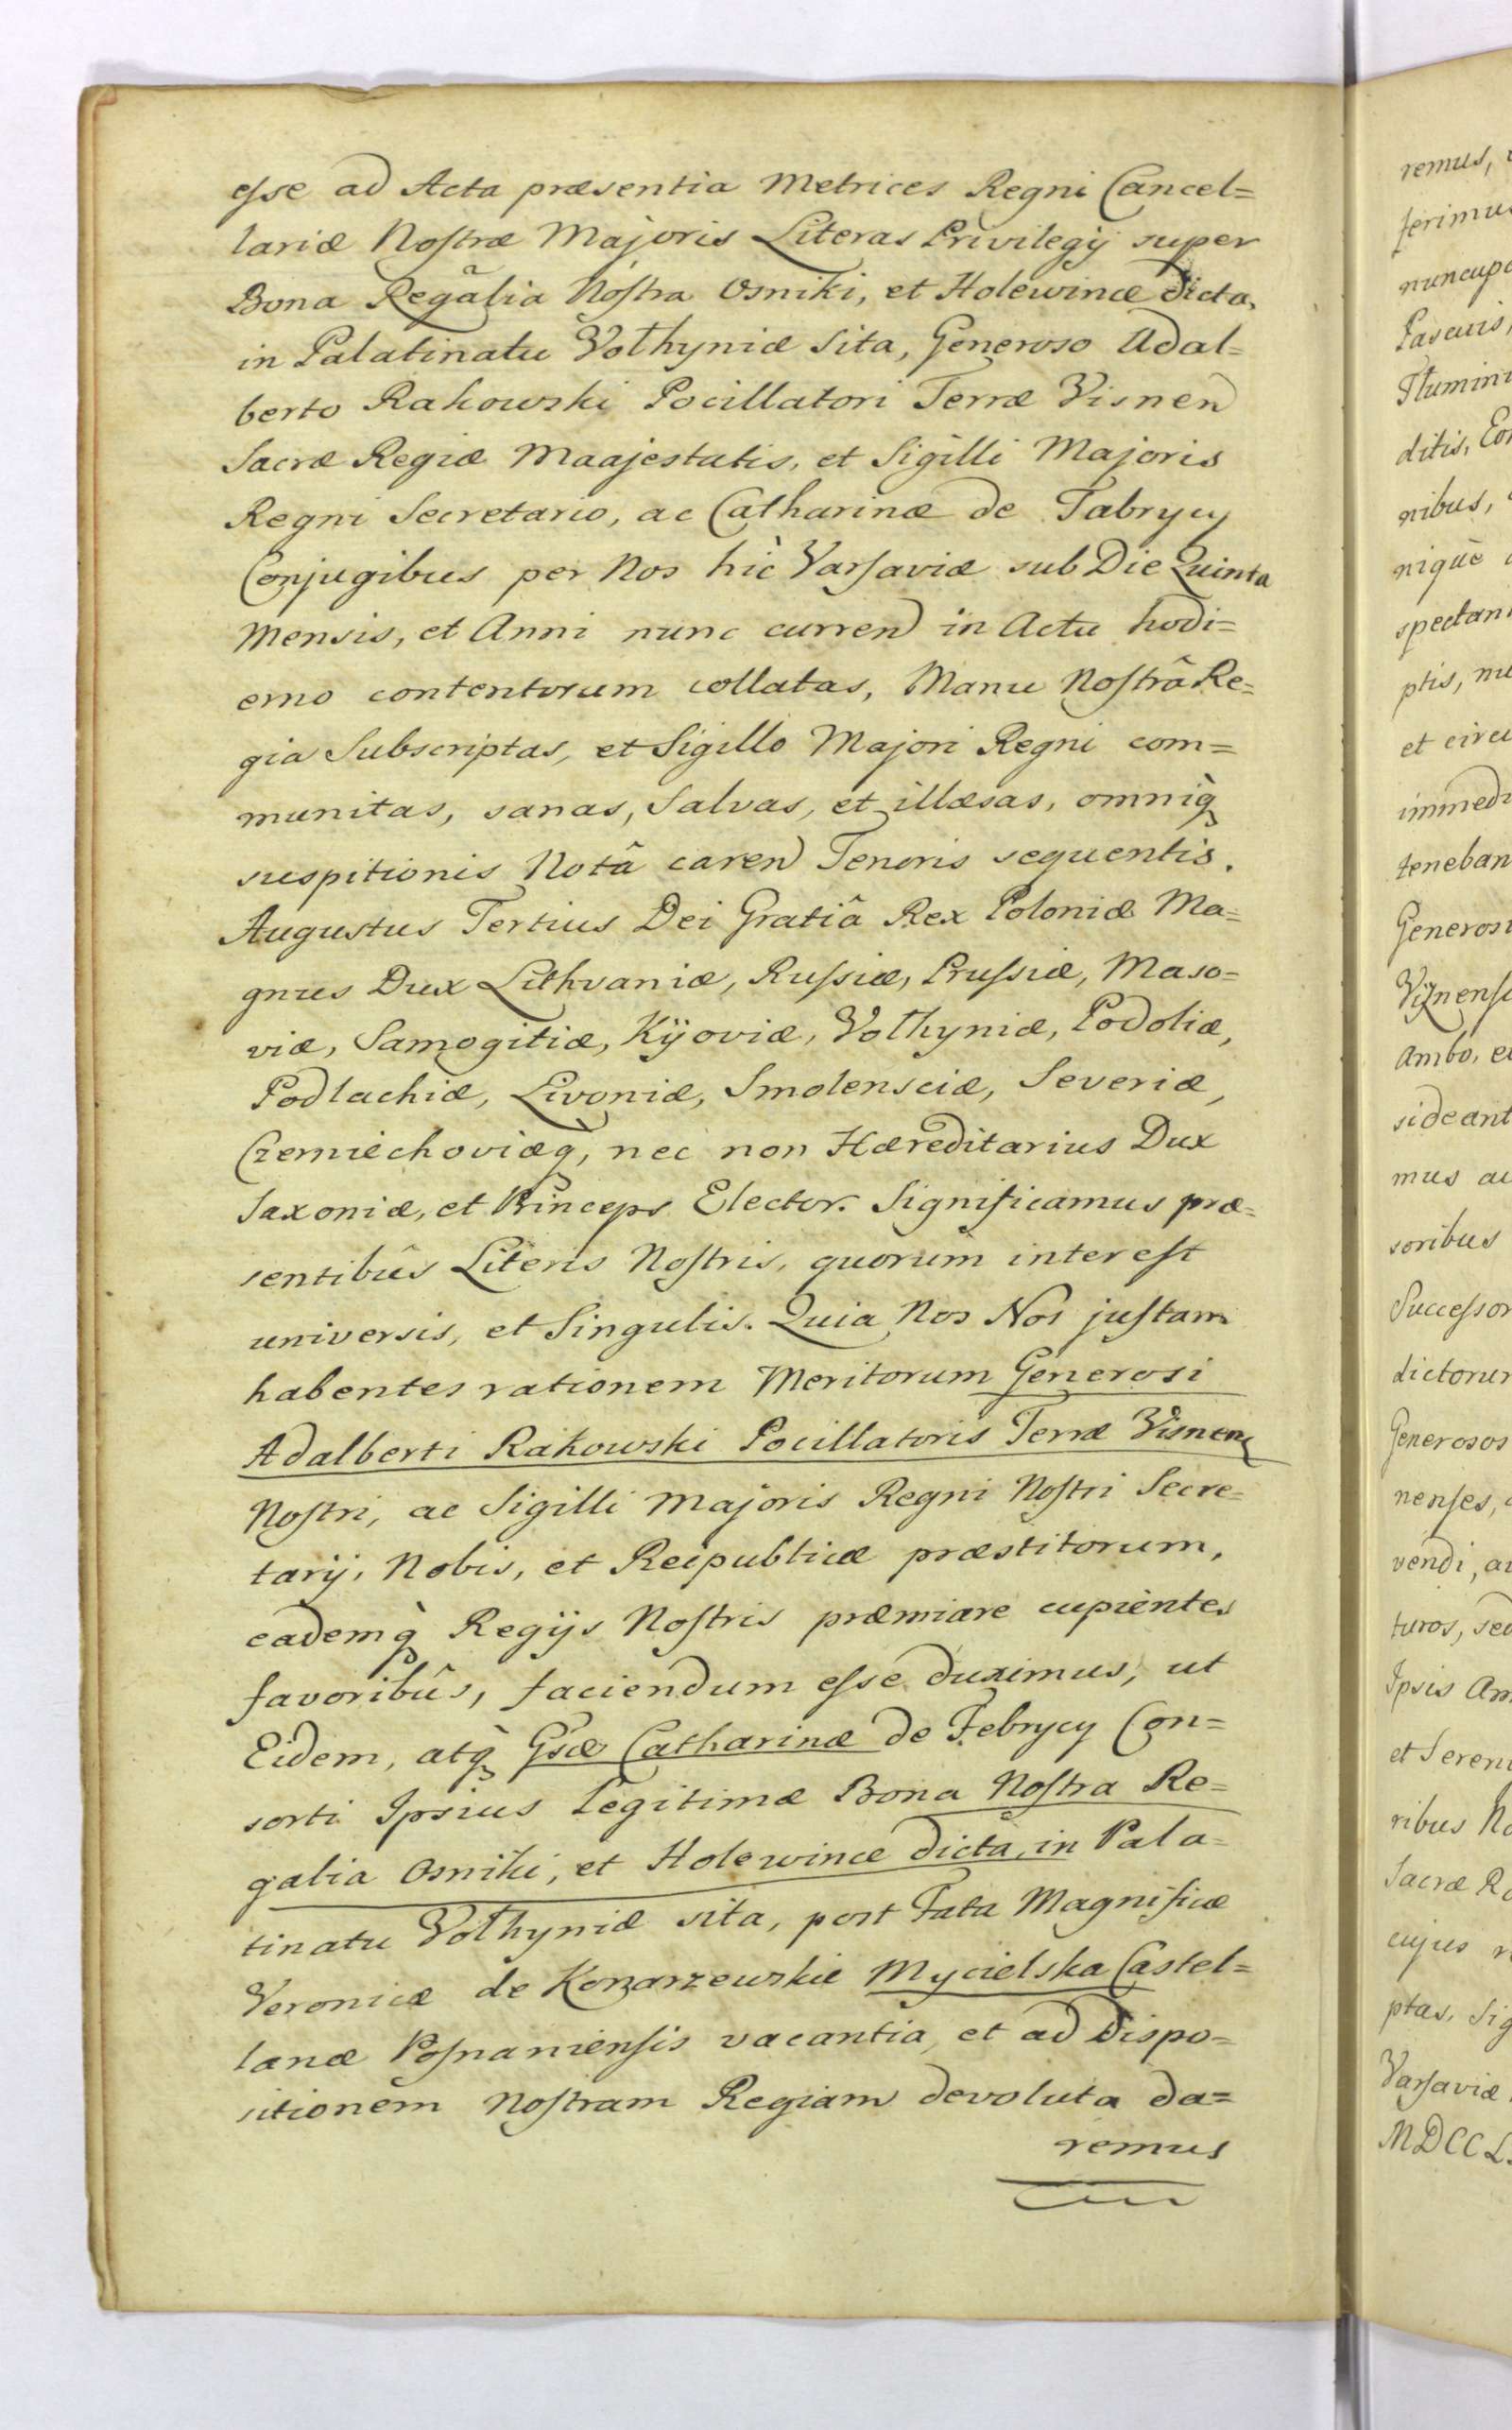 esse ad Acta præsentia Metrices Regni Cancel=
lariæ Nostræ Majoris Literas Privilegij super
Bona Regalia Nostra Osniki, et Holewince dicta,
in Palatinatu Volhyniæ Sita, Generoso Adal=
berto Rakowski Pocillatori Terræ Visnen
Sacræ Regiæ Maajestatis, et Sigilli Majoris
Regni Secretario, ac Catharinæ de Fabrycy
Conjugibus per Nos hic Varsaviæ sub Die Quinta
Mensis, et Anni nunc curren in Actu hodi=
erno contentorum collatas, Manu Nostrâ Re=
gia Subscriptas, et Sigillo Majori Regni com=
munitas, sanas, Salvas, et illæsas, omniq̀
suspitionis Notâ caren Tenoris sequentis.
Augustus Tertius Dei Gratiâ Rex Poloniæ Ma=
gnus Dux Lithvaniæ, Russiæ, Prussiæ, Maso=
viæ, Samogitiæ, Kijoviæ, Volhyniæ, Podoliæ,
Podlachiæ, Livoniæ, Smolensciæ, Severiæ,
Czerniechoviæq, nec non Hæreditarius Dux
Saxoniæ, et Princeps Elector. Significamus præ=
sentibûs Literis Nostris, quorum interest
universis, et Singulis. Quia Nos Nos justam
habentes rationem Meritorum Generosi
Adalberti Rakowski Pocillatoris Terræ Visnen
Nostri, ac Sigilli Majoris Regni Nostri Secre=
tarij, Nobis, et Reipublicæ præstitorum,
eademq̀ Regijs Nostris præmiare cupientes
favoribûs, faciendum esse duximus, ut
Eidem, atq̀ Gsæ Catharinæ de Febrycy Con=
sorti Ipsius Legitimæ Bona Nostra Re=
galia Osniki, et Holewince dicta, in Pala=
tinatu Volhyniæ sita, post Fata Magnificæ
Veronicæ de Konarzewskie Mycielska Castel=
lanæ Posnaniensis vacantia, et ad Dispo=
sitionem Nostram Regiam devoluta da=
remus
remus,
ferimus
Pascuis,
ditis,
nibus,
niquè
ptis,
et
Generosi
Ambo,
sideant
mus
soribus
Generosos
nenses,
vendi,
turos,
Ipsis
et
ribus
Sacræ
cujus
ptas,
Varsaviæ